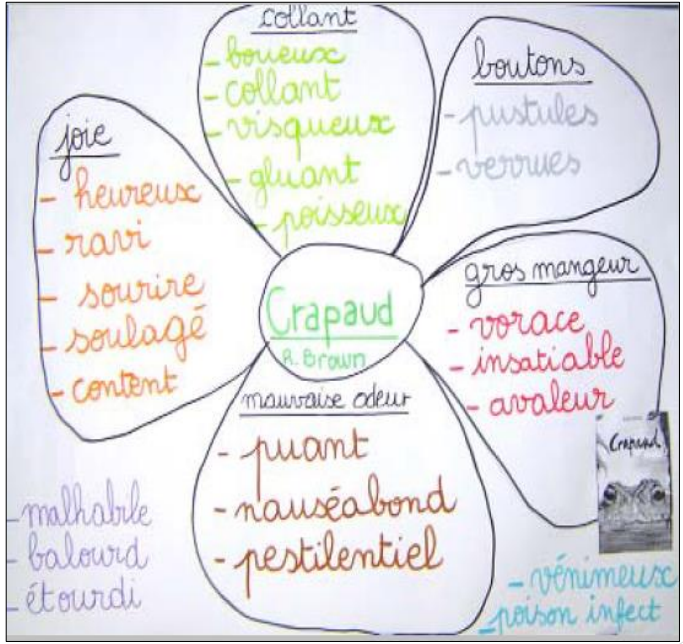 collant
- boueux
- collant
- visqueux
- gluant
- poisseux
boutons
- pustules
- verrues
joie
- heureux
- ravi
- sourire
- soulagé
- content
gros mangeur
- vorace
- insatiable
- avaleur
Crapaud
R. Brown
mauvaise odeur
- puant
- nauséabond
- pestilentiel
Crapaud
- malhabile
- balourd
- étourdi
- vénimeux
- poison infect